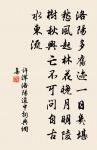 洛陽多舊迹一日幾堪
愁風起林花晚月明陵
樹秋興亡不可問自古
水東流
許渾洛陽道中詩典網
集